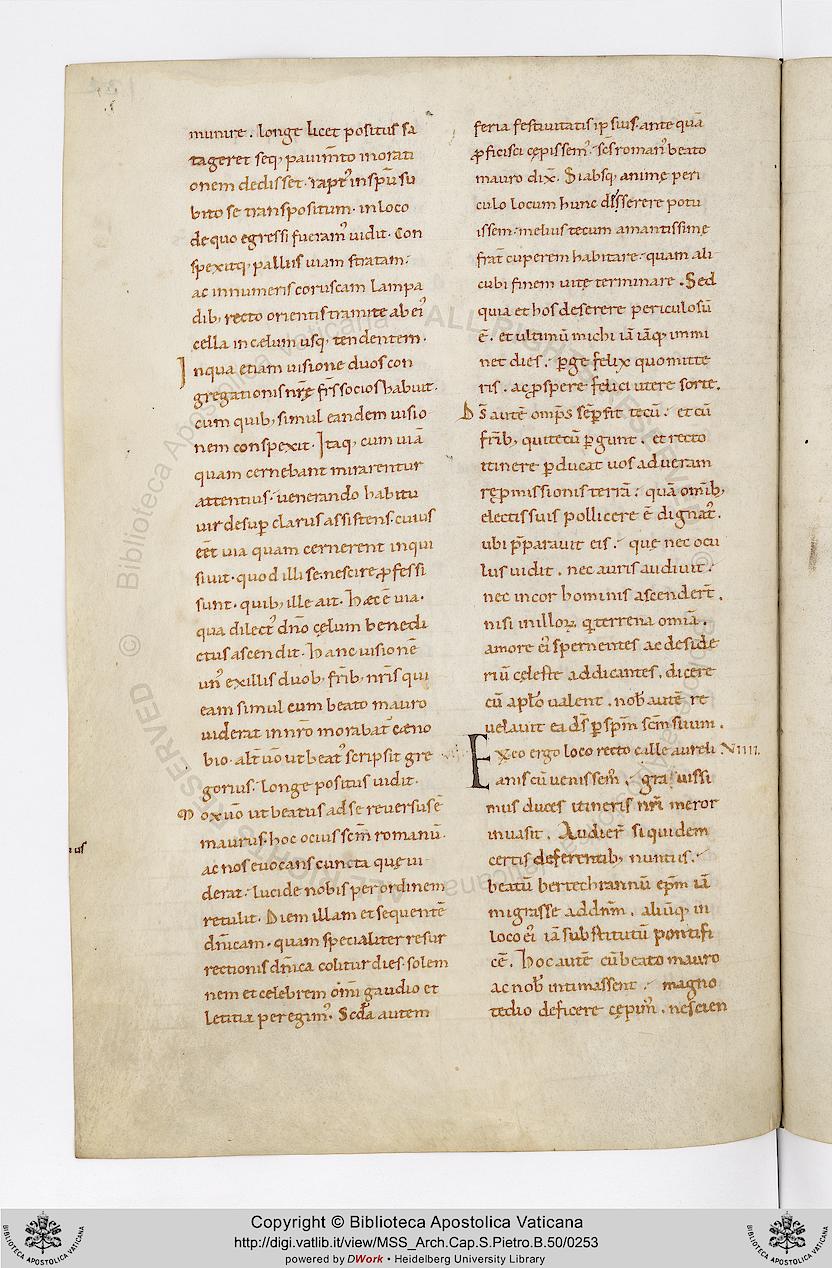 munire. longe licet positus sa
tageret seq; pauim̄to inorati
onem dedisset. rapt᷒ insp̄u su
bito se transpositum. in loco
de quo egressi fueram᷒ uidit. Con
spexitq; palliis uiam stratam.
ac innumeris coruscam lampa
dib; recto orientis tramite ab ei᷒
cella in cęlum usq; tendentem.
Inqua etiam uisione duos con
gregationis nr̄ę fr̄s socios habuit.
cum quib; simul eandem uisio
nem conspexit. Itaq; cum uiā
quam cernebant mirarentur
attentius. uenerando habitu
uir desup̄ clarus assistens. cuius
eēt uia quam cernerent inqui
siuit. quod illi se nescire ꝓfessi
sunt. quib; ille ait. Hæc ē uia.
qua dilect᷒ dn̄o cęlum benedi
ctus ascendit. Hanc uisionē
un᷒ exillis duob; fr̄ib; nr̄is qui
eam simul cum beato mauro
uiderat innr̄o morabat᷑ cœno
bio. alt̄ uō ut beat᷒ scripsit gre
gorius. longe positus uidit.
Mox uō ut beatus ad se reuersus ē
maurus. hoc ocius sc̄m romanū.
ac nos euocans cuncta quę ui
derat. lucide nobis per ordinem
retulit. Diem illam et sequentē
dn̄icam. quam specialiter resur
rectionis dn̄ica colitur dies. solem
nem et celebrem om̄i gaudio et
letitia peregim᷒. Sc̄da autem
feria festiuitatis ipsius. ante quā
ꝓficisci cępissem᷒. sc̄s roman᷒ beato
mauro dix̄. Si absq; animę peri
culo locum hunc disserere potu
issem. melius tecum amantissime
frat̄ cuperem habitare. quam ali
cubi finem uitę terminare. Sed
quia et hos deserere periculosū
ē. et ultimū michi iā iāq; immi
net dies. ꝑge felix quo mitte
ris. ac ꝓspere felici utere sorte.
Ds̄ autē om̄ps sēp sit tecū. et cū
fr̄ib; qui tecū ꝑgunt. et recto
itinere ꝑducat uos ad ueram
rępmissionis terrā. quā om̄ib;
electis suis pollicere ē dignat᷑.
ubi p̄parauit eis. quę nec ocu
lus uidit. nec auris audiuit.
nec in cor hominis ascender̄t.
nisi in illoꝝ. q̄ terrena om̄ia.
amore ei᷒ spernentes ac deside
riū cęleste addicantes. dicere
cū apl̄o ualent. nob̄ autē re
uelauit ea ds̄ ꝑ sp̄m sc̄m suum.
Exeo ergo loco recto calle aureli XIIII.
anis cū uenissem᷒. grauissi
mus duces itineris nr̄i meror
inuasit. Audier̄ siquidem
certis deferentib; nuntiis.
beatū bertechrannū ep̄m iā
migrasse ad dn̄m. aliūq; in
loco ei᷒ iā substitutū pontifi
cē. Hoc autē cū beato mauro
ac nob̄ intimassent. magno
tedio deficere cępim᷒. nescien
us
Copyright © Biblioteca Apostolica Vaticana
http://digi.vatlib.it/view/MSS_Arch.Cap.S.Pietro.B.50/0253
powered by DWork • Heidelberg University Library
BIBLIOTECA APOSTOLICA VATICANA
BIBLIOTECA APOSTOLICA VATICANA
© Biblioteca Apostolica Vaticana ALL RIGHTS RESERVED